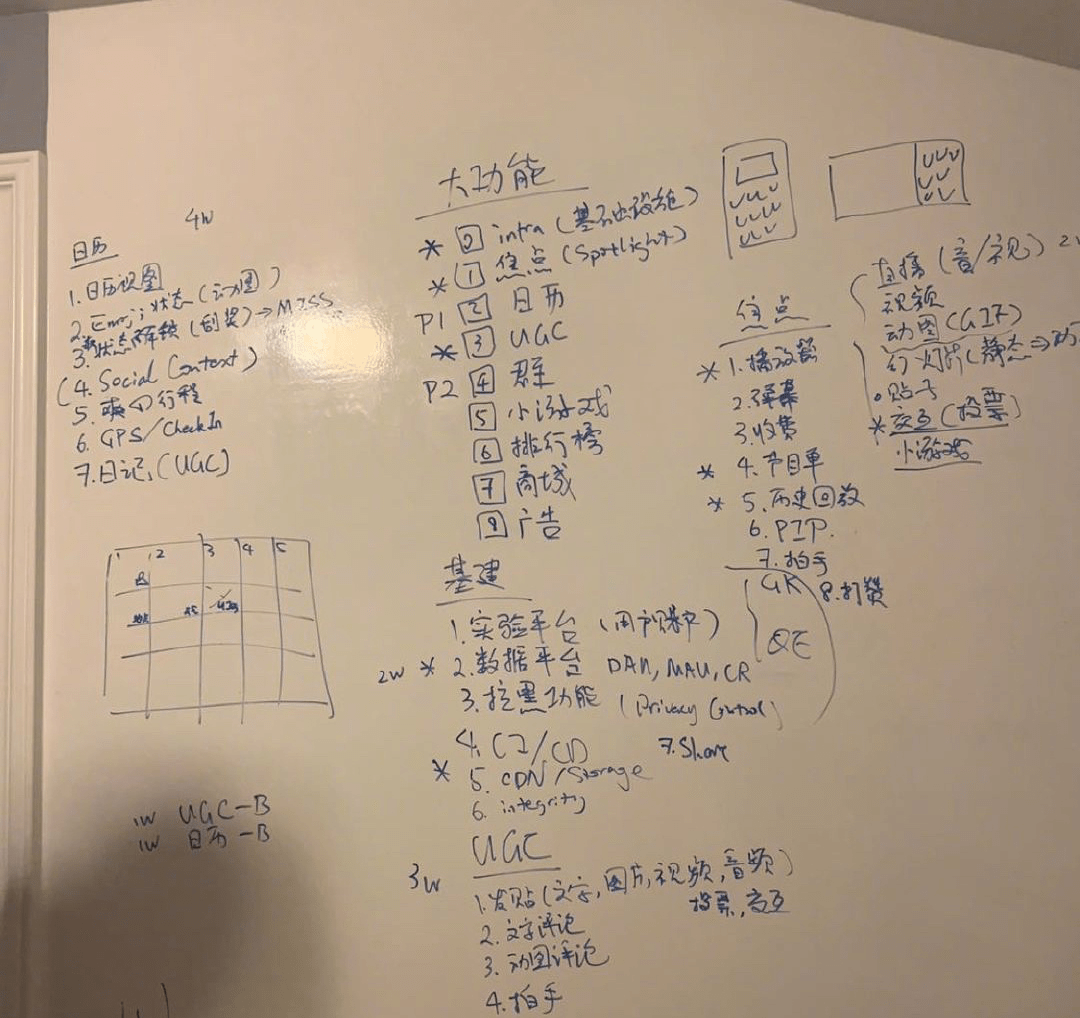 4W
日历
1.日历视图
2.Emoji状态(动图)
3.状态解锁(刮奖)→
(4.Social Context)
5.行程
6.GPS/CheckIn
7.日记,(UGC)
1 2 3 4 5
1W UGC-B
1W 日历-B
大功能
* 0 infra(基础设施)
* 1 焦点(Spotlight)
P1 2 日历
* 3 UGC
P2 4 群
5 小游戏
6 排行榜
7 商城
广告
基建
1.实验平台(用户保护)
GK
QE
2W * 2.数据平台 DAU,MAU,CR
3.拉黑功能(Privacy Control)
4.CI/CD 7.Share
* 5.CDN/Storage
6.integrity
UGC
3W
1.发贴(文字,图片,视频,音频)
投票,交互
2.文字评论
3.动图评论
4.拍手
焦点
* 1.播放器
2.弹幕
3.收费
* 4.节目单
* 5.历史回放
6.PIP.
7.拍手
8.打赏
直播(音/视)
视频
动图(GIF)
幻灯片(静态⇒动
贴子
*交互(投票)
小游戏